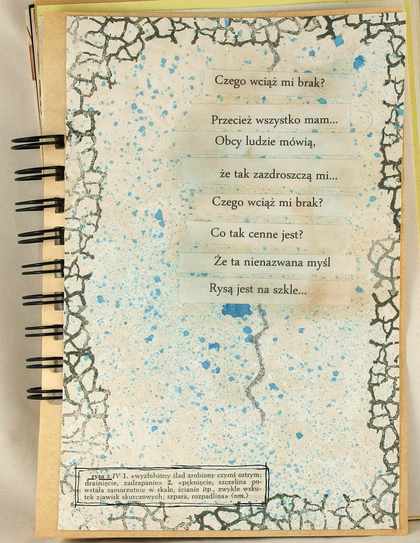 Czego wciąż mi brak?
Przecież wszystko mam...
Obcy ludzie mówią,
że tak zazdroszczą mi...
Czego wciąż mi brak?
Co tak cenne jest?
Że ta nienazwana myśl
Rysą jest na szkle...
rysa ż IV 1. «wyżłobiony ślad zrobiony czymś ostrym;
draśnięcie, zadrapanie» 2. «pęknięcie, szczelina po-
wstała samorzutnie w skale, ścianie itp., zwykle wsku-
tek zjawisk skurczowych; szpara, rozpadlina» (nm.)